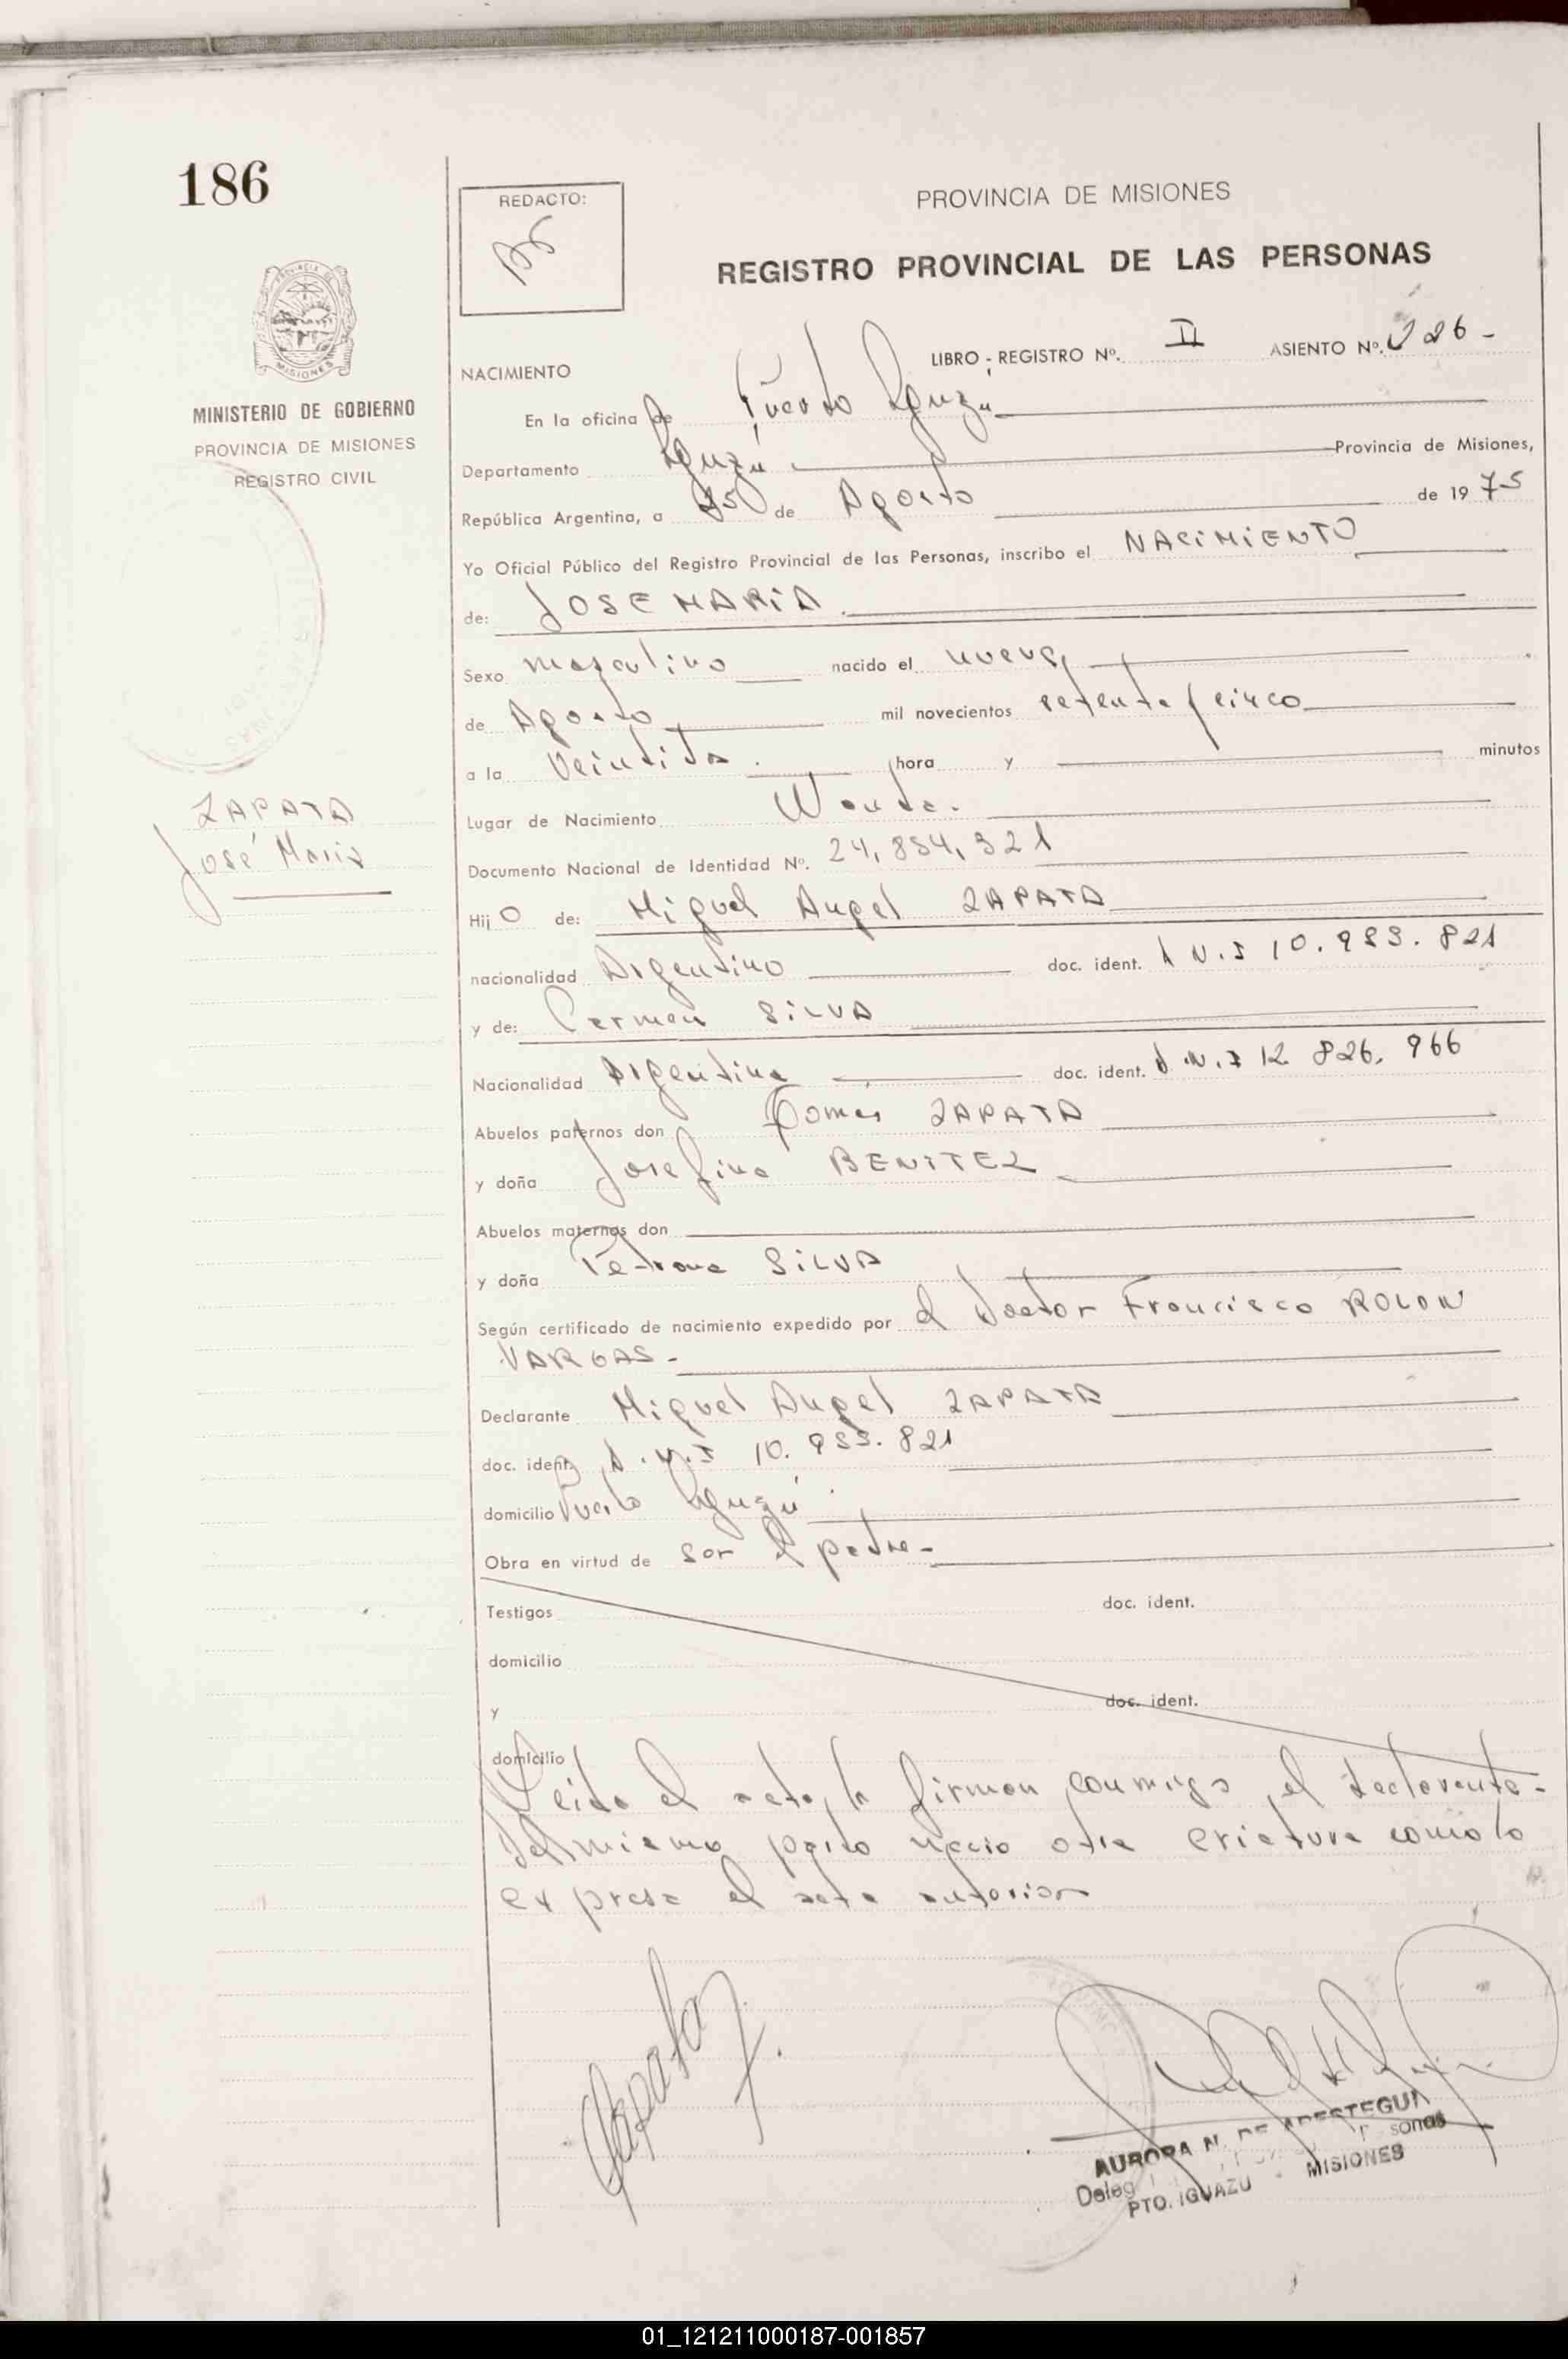 186
REDACTO:
PROVINCIA DE MISIONES
REGISTRO PROVINCIAL DE LAS PERSONAS
MISIONES
MINISTERIO DE GOBIERNO
PROVINCIA DE MISIONES
REGISTRO CIVIL
ZAPATA
José María
NACIMIENTO
LIBRO - REGISTRO Nº. II ASIENTO Nº. 226 -
En la oficina de Puerto Iguazú
Departamento Iguazú Provincia de Misiones,
República Argentina, a de Agosto de 1975
Yo Oficial Público del Registro Provincial de las Personas, inscribo el NACIMIENTO
de: JOSE MARIA.
Sexo masculino nacido el nueve
de Agosto mil novecientos setenta y cinco
a la hora y minutos
Lugar de Nacimiento Wanda.
Documento Nacional de Identidad Nº. 24,854,321
Hijo de: Miguel Angel ZAPATA
nacionalidad Argentino doc. ident. D N.I 10.983.821
y de: Carmen SILVA
Nacionalidad Argentina doc. ident. D.N.I 12 826.966
Abuelos paternos don Tomás ZAPATA
y doña Josefina BENITEZ
Abuelos maternos don
y doña Petrona SILVA
Según certificado de nacimiento expedido por el Doctor Francisco ROLON
VARGAS -
Declarante Miguel Angel ZAPATA
doc. ident. D.N.I 10.983.821
domicilio Puerto Iguazú
Obra en virtud de ser el padre -
Testigos doc. ident.
domicilio
y doc. ident.
domicilio
Leida el acta, la firman conmigo, el declarante -
Del mismo parto nacio otra criatura como lo
expresa el acta anterior
Zapata
AURORA N. DE APESTEGUI
Deleg sonas
PTO. IGUAZU - MISIONES
01_121211000187-001857